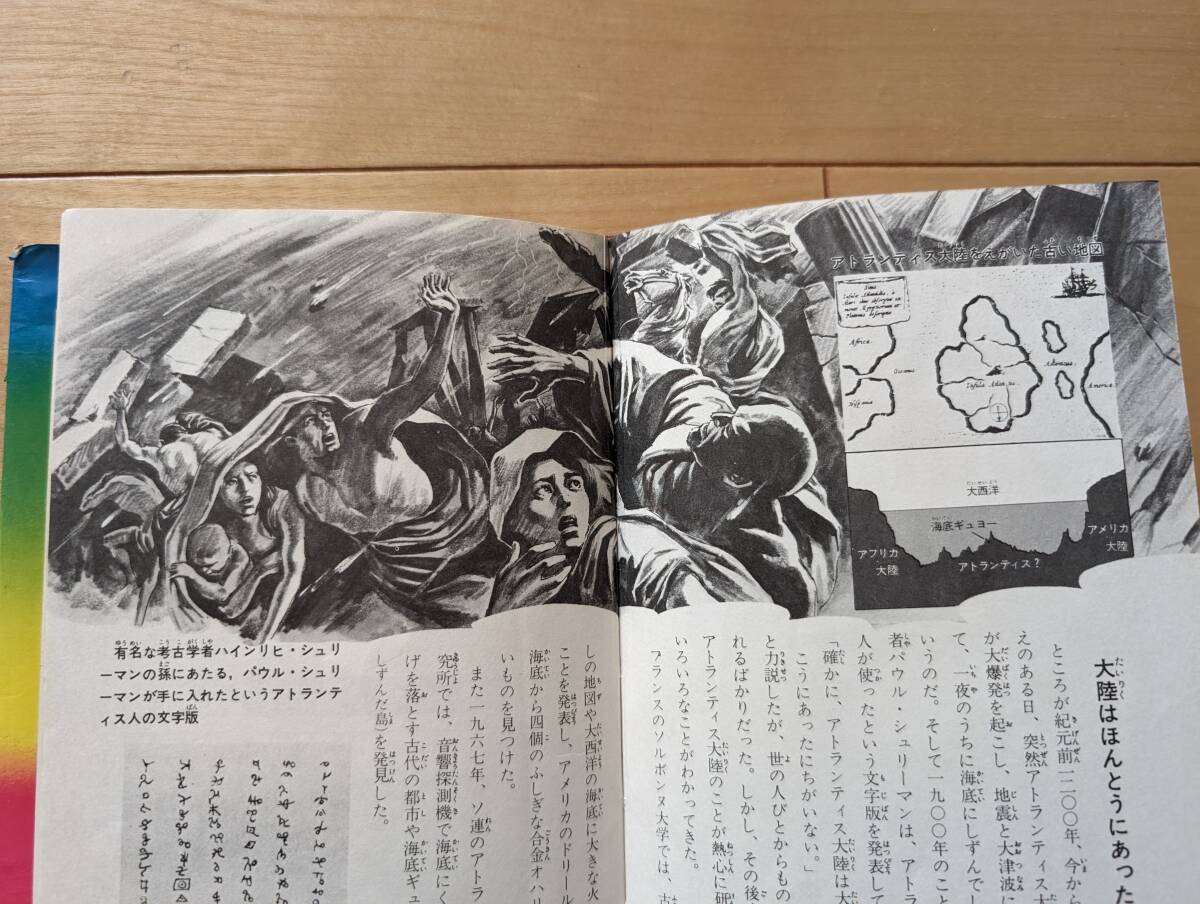 アトランティス大陸をえがいた古い地図
Africa
Oceanus
Insula Atlantis,
America
大西洋
海底ギュヨー
アフリカ
大陸
アトランティス?
アメリカ
大陸
大陸はほんとうにあった
ところが紀元前一二〇〇年、今から
えのある日、突然アトランティス大
が大爆発を起こし、地震と大津波に
て、一夜のうちに海底にしずんでし
いうのだ。そして一九〇〇年のこと
者パウル・シュリーマンは、アトラ
人が使ったという文字版を発表して
「確かに、アトランティス大陸は大
こうにあったにちがいない。」
と力説したが、世の人びとからもの
れるばかりだった。しかし、その後
アトランティス大陸のことが熱心に研
いろいろなことがわかってきた。
フランスのソルボンヌ大学では、古
しの地図や大西洋の海底に大きな火
ことを発表し、アメリカのドリール
海底から四個のふしぎな合金オハリ
いものを見つけた。
また一九六七年、ソ連のアトラ
究所では、音響探測機で海底にく
げを落とす古代の都市や海底ギュ
しずんだ島)を発見した。
有名な考古学者ハインリヒ・シュリ
ーマンの孫にあたる,パウル・シュリ
ーマンが手に入れたというアトランテ
ィス人の文字版